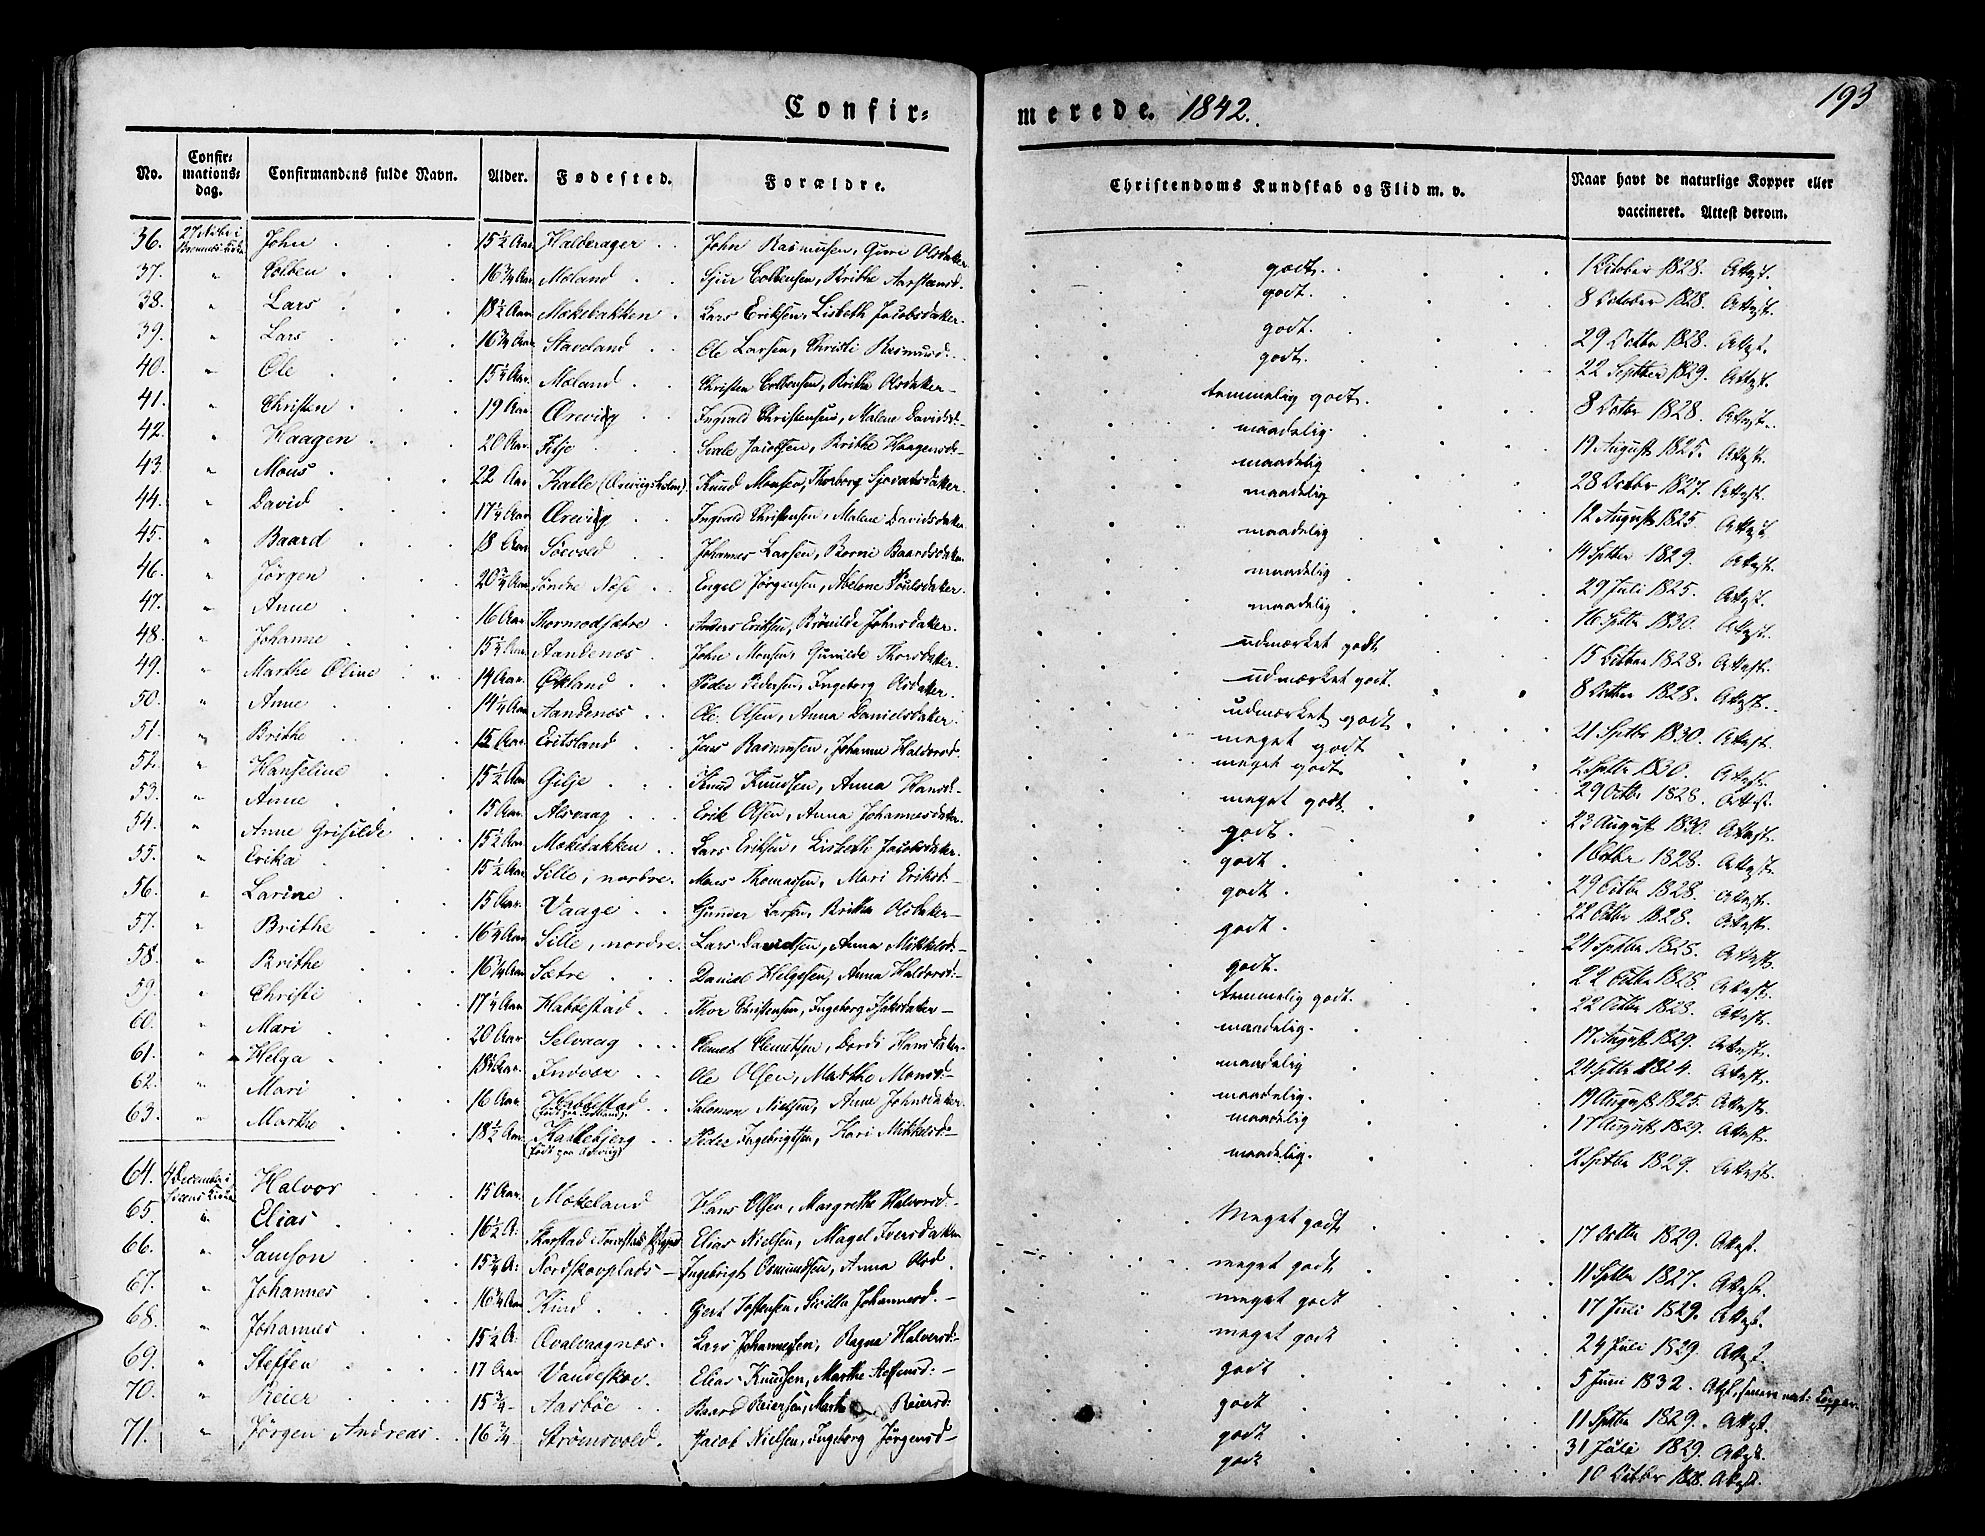 Confir-
merede. 1842.
193
No. | Confir-mations-dag. | Confirmandens fulde Navn. | Alder. | Fødested. | Forældre. | Christendoms Kundskab og Flid m. v. | Naar havt de naturlige Kopper eller vaccineret. Attest derom.
36. | John | 15½ Aar | Halderager | John Rasmusen, Guri Olsdaker | godt. | 1 October 1828. Attest.
37. | " | Colben | 16¾ Aar | Moland | Sjur Colbensen, Brithe Aarstensd. | godt. | 8 October 1828. Attest.
38. | " | Lars | 18½ Aar | Mokebakken | Lars Eriksen, Lisbeth Jacobsdaker. | godt. | 29 Octbr 1828. Attest.
39. | " | Lars | 16¾ Aar | Staveland | Ole Larsen, Christi Rasmusd. | godt. | 22 Septber 1829. Attest.
40. | " | Ole | 15¼ Aar | Moland | Christen Colbensen, Brithe Olsdaker | temmelig godt. | 8 Octbr 1828. Attest.
41. | " | Christen | 19 Aar | Ørevig | Ingvald Christensen, Malene Davidsd. | maadelig. | 19 August 1825. Attest
42. | " | Haagen | 20 Aar | Filje | Sivle Jacobsen, Brithe Haagensd | maadelig | 28 Octbr 1827. Attest.
43. | " | Mons | 22 Aar | Kalle (Ørevigsholm) | Knud Monsen, Thorborg Sjovatsdaker. | maadelig | 12 August 1825. Attest
44. | " | David | 17¼ Aar | Ørevig | Ingvald Christensen, Malene Davidsdaker | maadelig | 14 Septbr 1829. Attest.
45. | " | Baard | 18 Aar | Soevold | Johannes Larsen, Borni Baardsdaker | maadelig | 29 Juli 1825. Attest.
46. | " | Jørgen | 20¾ Aar | Søndre Nøse | Engel Jørgensen, Abelone Poulsdaker. | maadelig | 16 Septbr 1830. Attest.
47. | " | Anne | 16 Aar | Thormodsætre | Anders Eriksen, Brønilde Johnsdaker. | udmærket godt | 15 Octbr 1828. Attest.
48. | " | Johanne | 15¼ Aar | Aandenæs | John Monsen, Gunilde Thorsdaker. | udmærket godt. | 8 Octbr 1828. Attest.
49. | " | Marthe Oline | 19 Aar | Økland | Peder Pedersen, Ingeborg Olsdaker. | udmærket godt | 21 Septbr 1830. Attest.
50. | " | Anne | 14¼ Aar | Aandenæs | Ole Olsen, Anna Danielsdaker | meget godt | 2 Septbr 1830. Attest.
51. | " | Brithe | 15 Aar | Eritsland | Jens Rasmusen, Johanne Haldorsd. | meget godt | 29 Octbr 1828. Attest.
52. | " | Hanseline | 15½ Aar | Gilje | Knud Knudsen, Anna Hansd. | meget godt | 23 August 1830. Attest.
53. | " | Anne | 15 Aar | Alsvaag | Erik Olsen, Anna Johannesdaker. | godt. | 1 Octbr 1828. Attest.
54. | " | Anne Grisilde | 15½ Aar | Mokebakken | Lars Eriksen, Lisbeth Jacobsdaker. | godt. | 29 Octbr 1828. Attest.
55. | " | Erika | 15½ Aar | Sille, nordre. | Mons Thomassen, Mari Eriksd. | godt | 22 Octbr 1828. Attest.
56. | " | Larine | 15 Aar. | Vaage | Gunder Larsen, Brithe Olsdaker | godt. | 24 Septbr 1828. Attest.
57. | " | Brithe | 16¼ Aar | Sille, nordre. | Lars Davidsen, Anna Mikkelsd. | godt. | 22 Octbr 1828. Attest.
58. | " | Brithe | 16¾ Aar | Sætre | Daniel Helgesen, Anna Haldorsd. | temmelig godt. | 22 Octbr 1828. Attest.
59. | " | Christi | 17¼ Aar | Habbestad | Thor Christensen, Ingeborg Isaksdaker | maadelig. | 17 August 1829. Attest.
60. | " | Mari | 20 Aar | Selvaag | Clemet Clemetsen, Dordi Hansdaker | maadelig | 24 Septbr 1824. Attest.
61. | " | Helga | 18½ Aar | Indvær | Ole Olsen, Marthe Monsd. | maadelig. | 19 August 1825. Attest.
62. | " | Mari | 16 Aar | Habbestad | Salomon Nielsen, Anne Johnsdaker. | maadelig | 17 August 1829. Attest.
63. | " | Marthe | 18½ Aar | Kallebjerg | Peder Ingebrigtsen, Kari Mikkelsd. | maadelig. | 2 Septbr 1829. Attest.
64. | 4 December i | Halvor | 15 Aar | Mokeland | Hans Olsen, Margrethe Halvorsd. | Meget godt | 17 Octbr 1829. Attest.
65. | " | Elias | 16½ A. | Skarstad | Elias Nielsen, Magel Iversdaker | meget godt | 11 Septbr 1827. Attest.
66. | " | Samson | 15¾ A. | Nordskovplads | Ingebrigt Osmundsen, Anna Olsd. | meget godt | 17 Juli 1829. Attest.
67. | " | Johannes | 16¾ Aar | Kind | Gjert Tostensen, Sivilla Johannesd. | meget godt | 24 Juli 1829. Attest.
68. | " | Johannes | 15½ A. | Qvalvaagnæs. | Lars Johannesen, Ragna Halvorsd. | godt | 5 Juni 1832.
69. | " | Steffen | 17 Aar | Vandeskov. | Elias Knudsen, Marthe Steffensd. | godt | 11 Septbr 1829. Attest.
70. | " | Reier | 15¾. | Aasbøe | Baard Reiersen, Reiersd. | godt | 31 Juli 1829. Attest.
71. | " | Jørgen Andreas | 16¾. | Strømsvold. | Jacob Nielsen, Ingeborg Jørgensd | godt | 10 Octbr 1828. Attest.